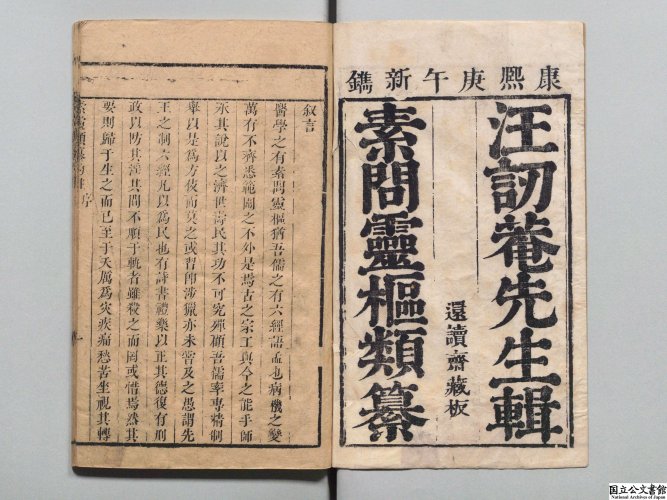 康熙庚午新鐫
汪訒菴先生輯
還讀齋藏板
素問靈樞類纂
叙言
醫學之有素問靈樞猶吾儒之有六經語孟也病機之變
萬有不齊悉範圍之不外是焉古之宗工與今之能手師
承其說以之濟世壽民其功不可究殫顧吾儒率專精制
舉以是爲方伎而莫之或習卽涉獵亦未甞及之愚謂先
王之制六經凡以爲民也有詩書禮樂以正其德復有刑
政以防其淫其間不順于軌者雖殺之而罔或惜焉然其
要則歸于生之而已至于夭厲爲灾疾痛愁苦坐視其轉
序
一
国立公文書館
National Archives of Japan